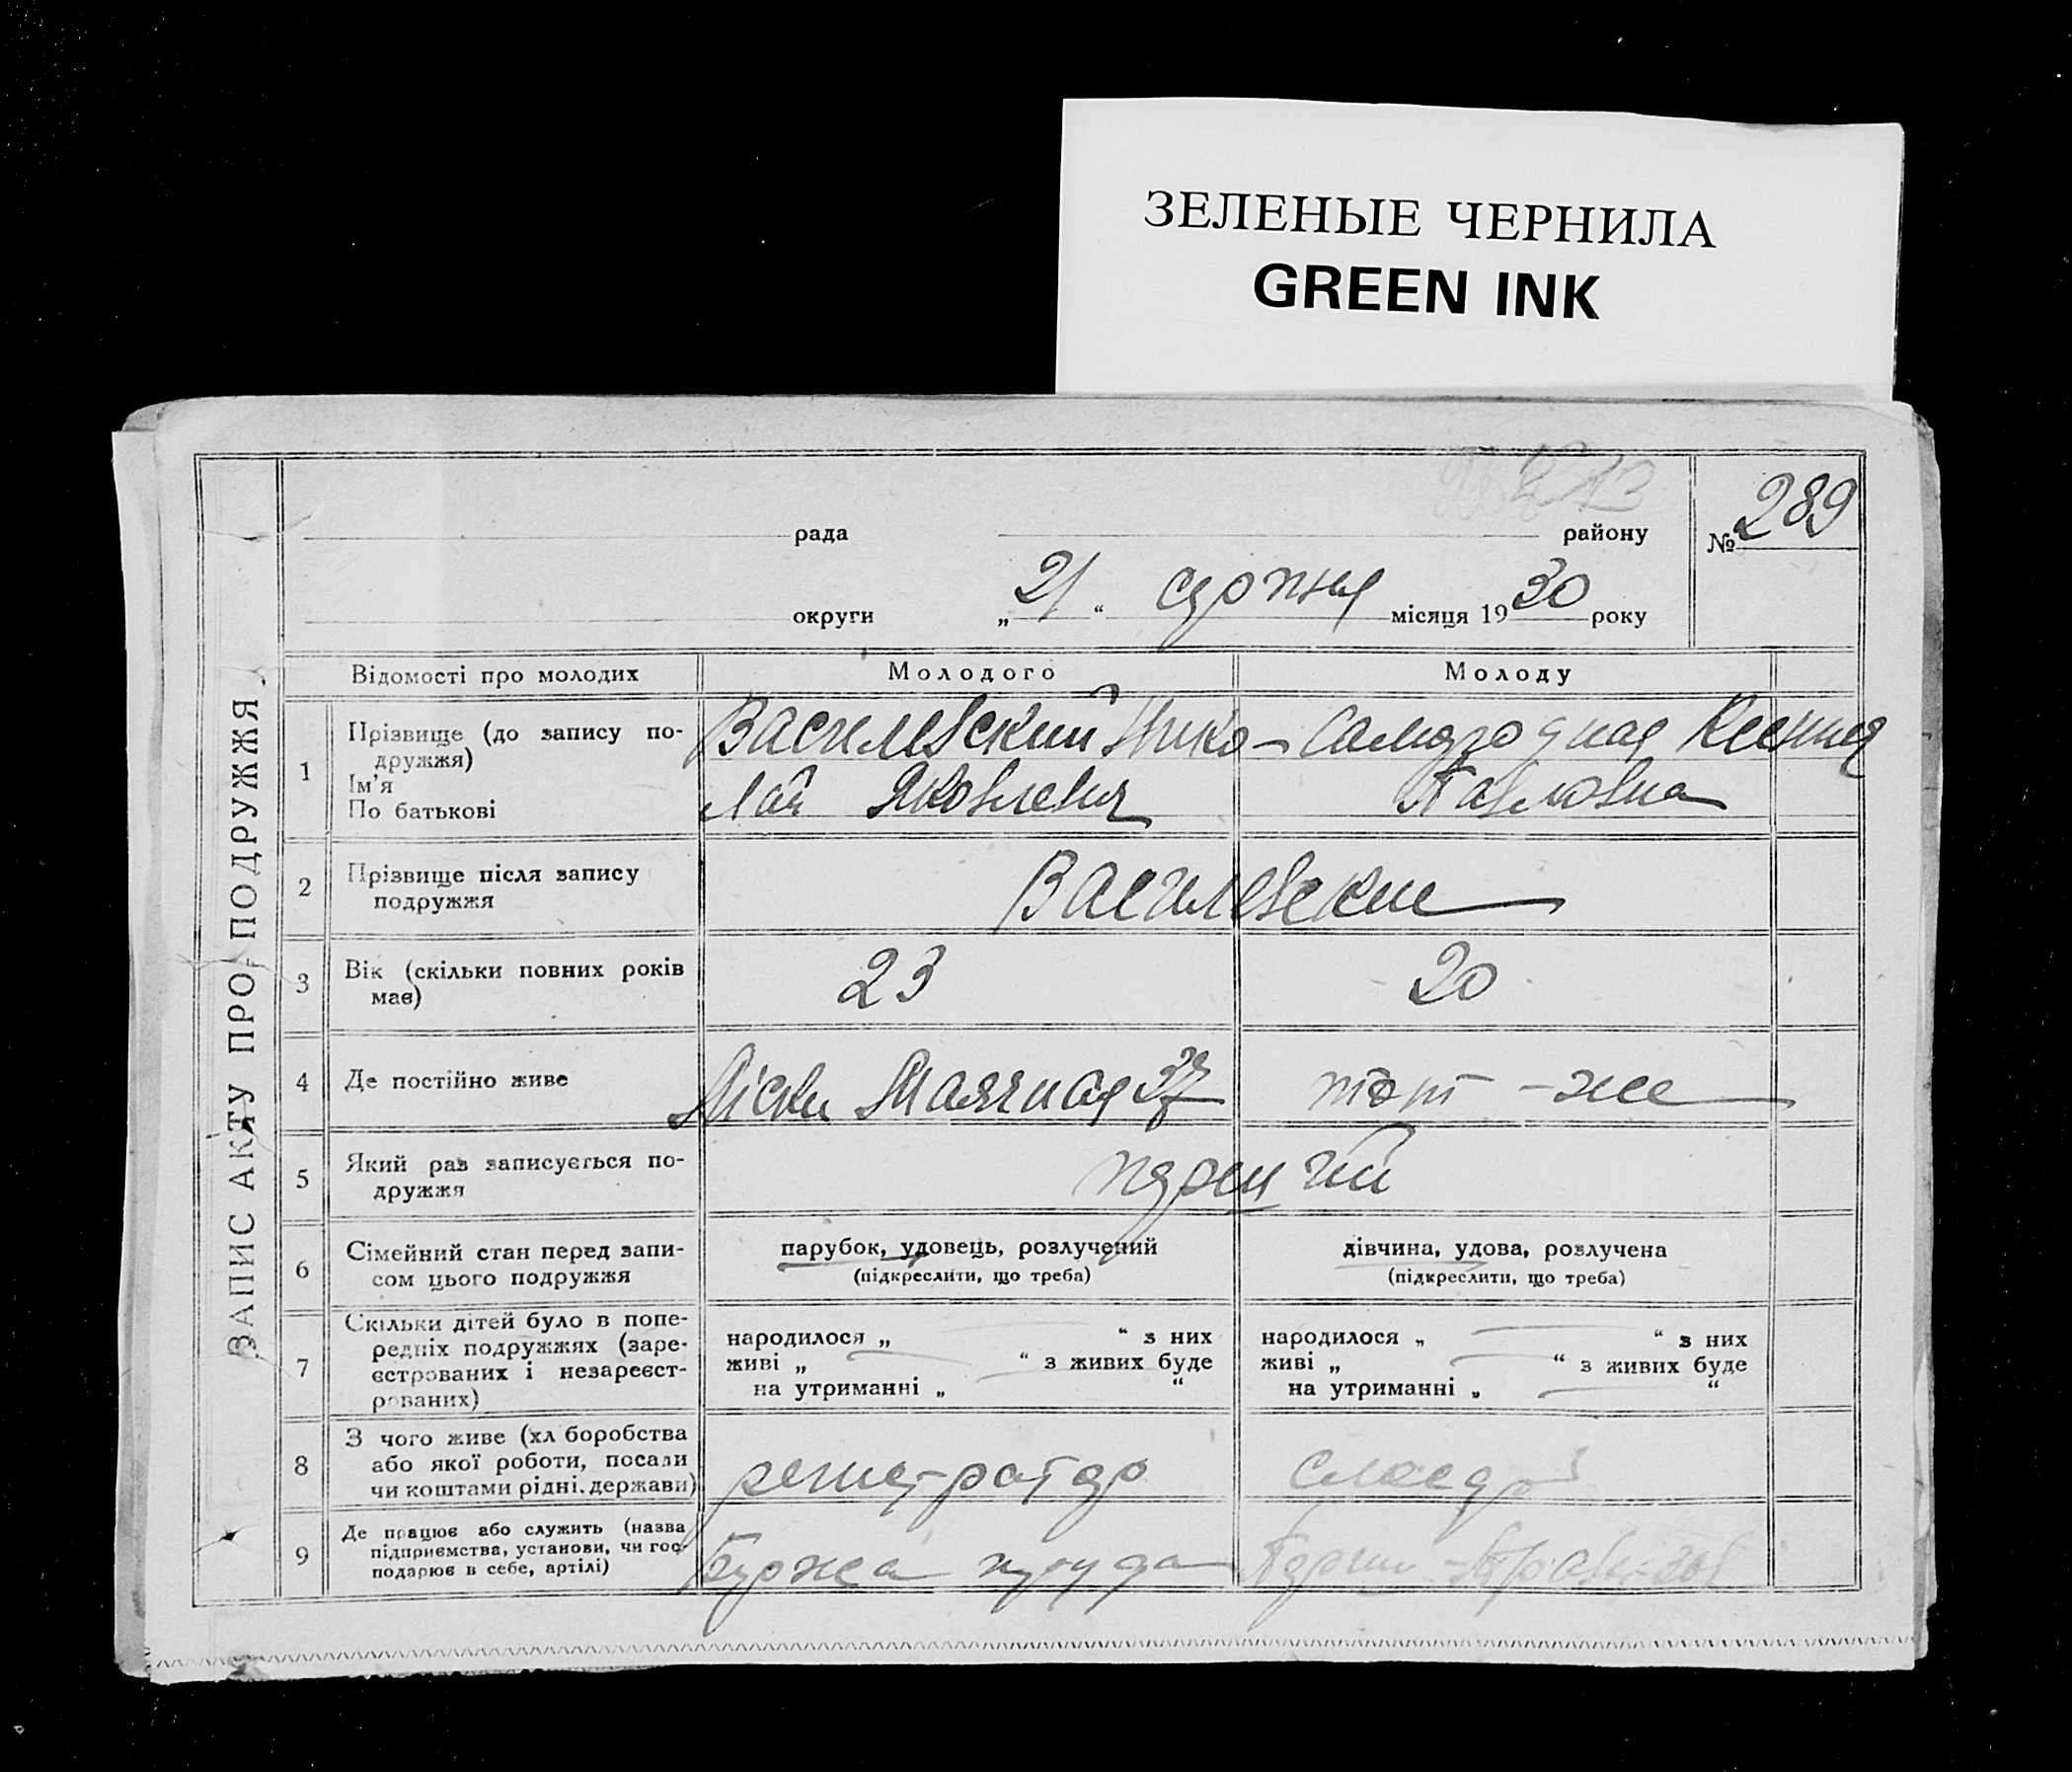 ЗЕЛЕНЫЕ ЧЕРНИЛА
GREEN INK
ЗАПИС АКТУ ПРО ПОДРУЖЖЯ
рада району № 289
округи „21“ місяця 1930 року
Відомості про молодих Молодого Молоду
1 Прізвище (до запису подружжя) Ім'я По батькові
Василевский Нико-
лай Яковлевич
Самородная Ксения
Павловна
2 Прізвище після запису подружжя
Василевские
3 Вік (скільки повних років має) 23 20
4 Де постійно живе Ліски Маячная 37 тот-же
5 Який раз записується подружжя
6 Сімейний стан перед записом цього подружжя
парубок, удовець, розлучений
(підкреслити, що треба)
дівчина, удова, розлучена
(підкреслити, що треба)
7 Скільки дітей було в попередніх подружжях (зареєстрованих і незареєстрованих)
народилося „ “ з них
живі „ “ з живих буде
на утриманні „ “
народилося „ “ з них
живі „ “ з живих буде
на утриманні „ “
8 З чого живе (хліборобства
або якої роботи, посади
чи коштами рідні, держави)
9 Де працює або служить (назва
підприємства, установи, чи гос-
подарює в себе, артілі)
Биржа труда